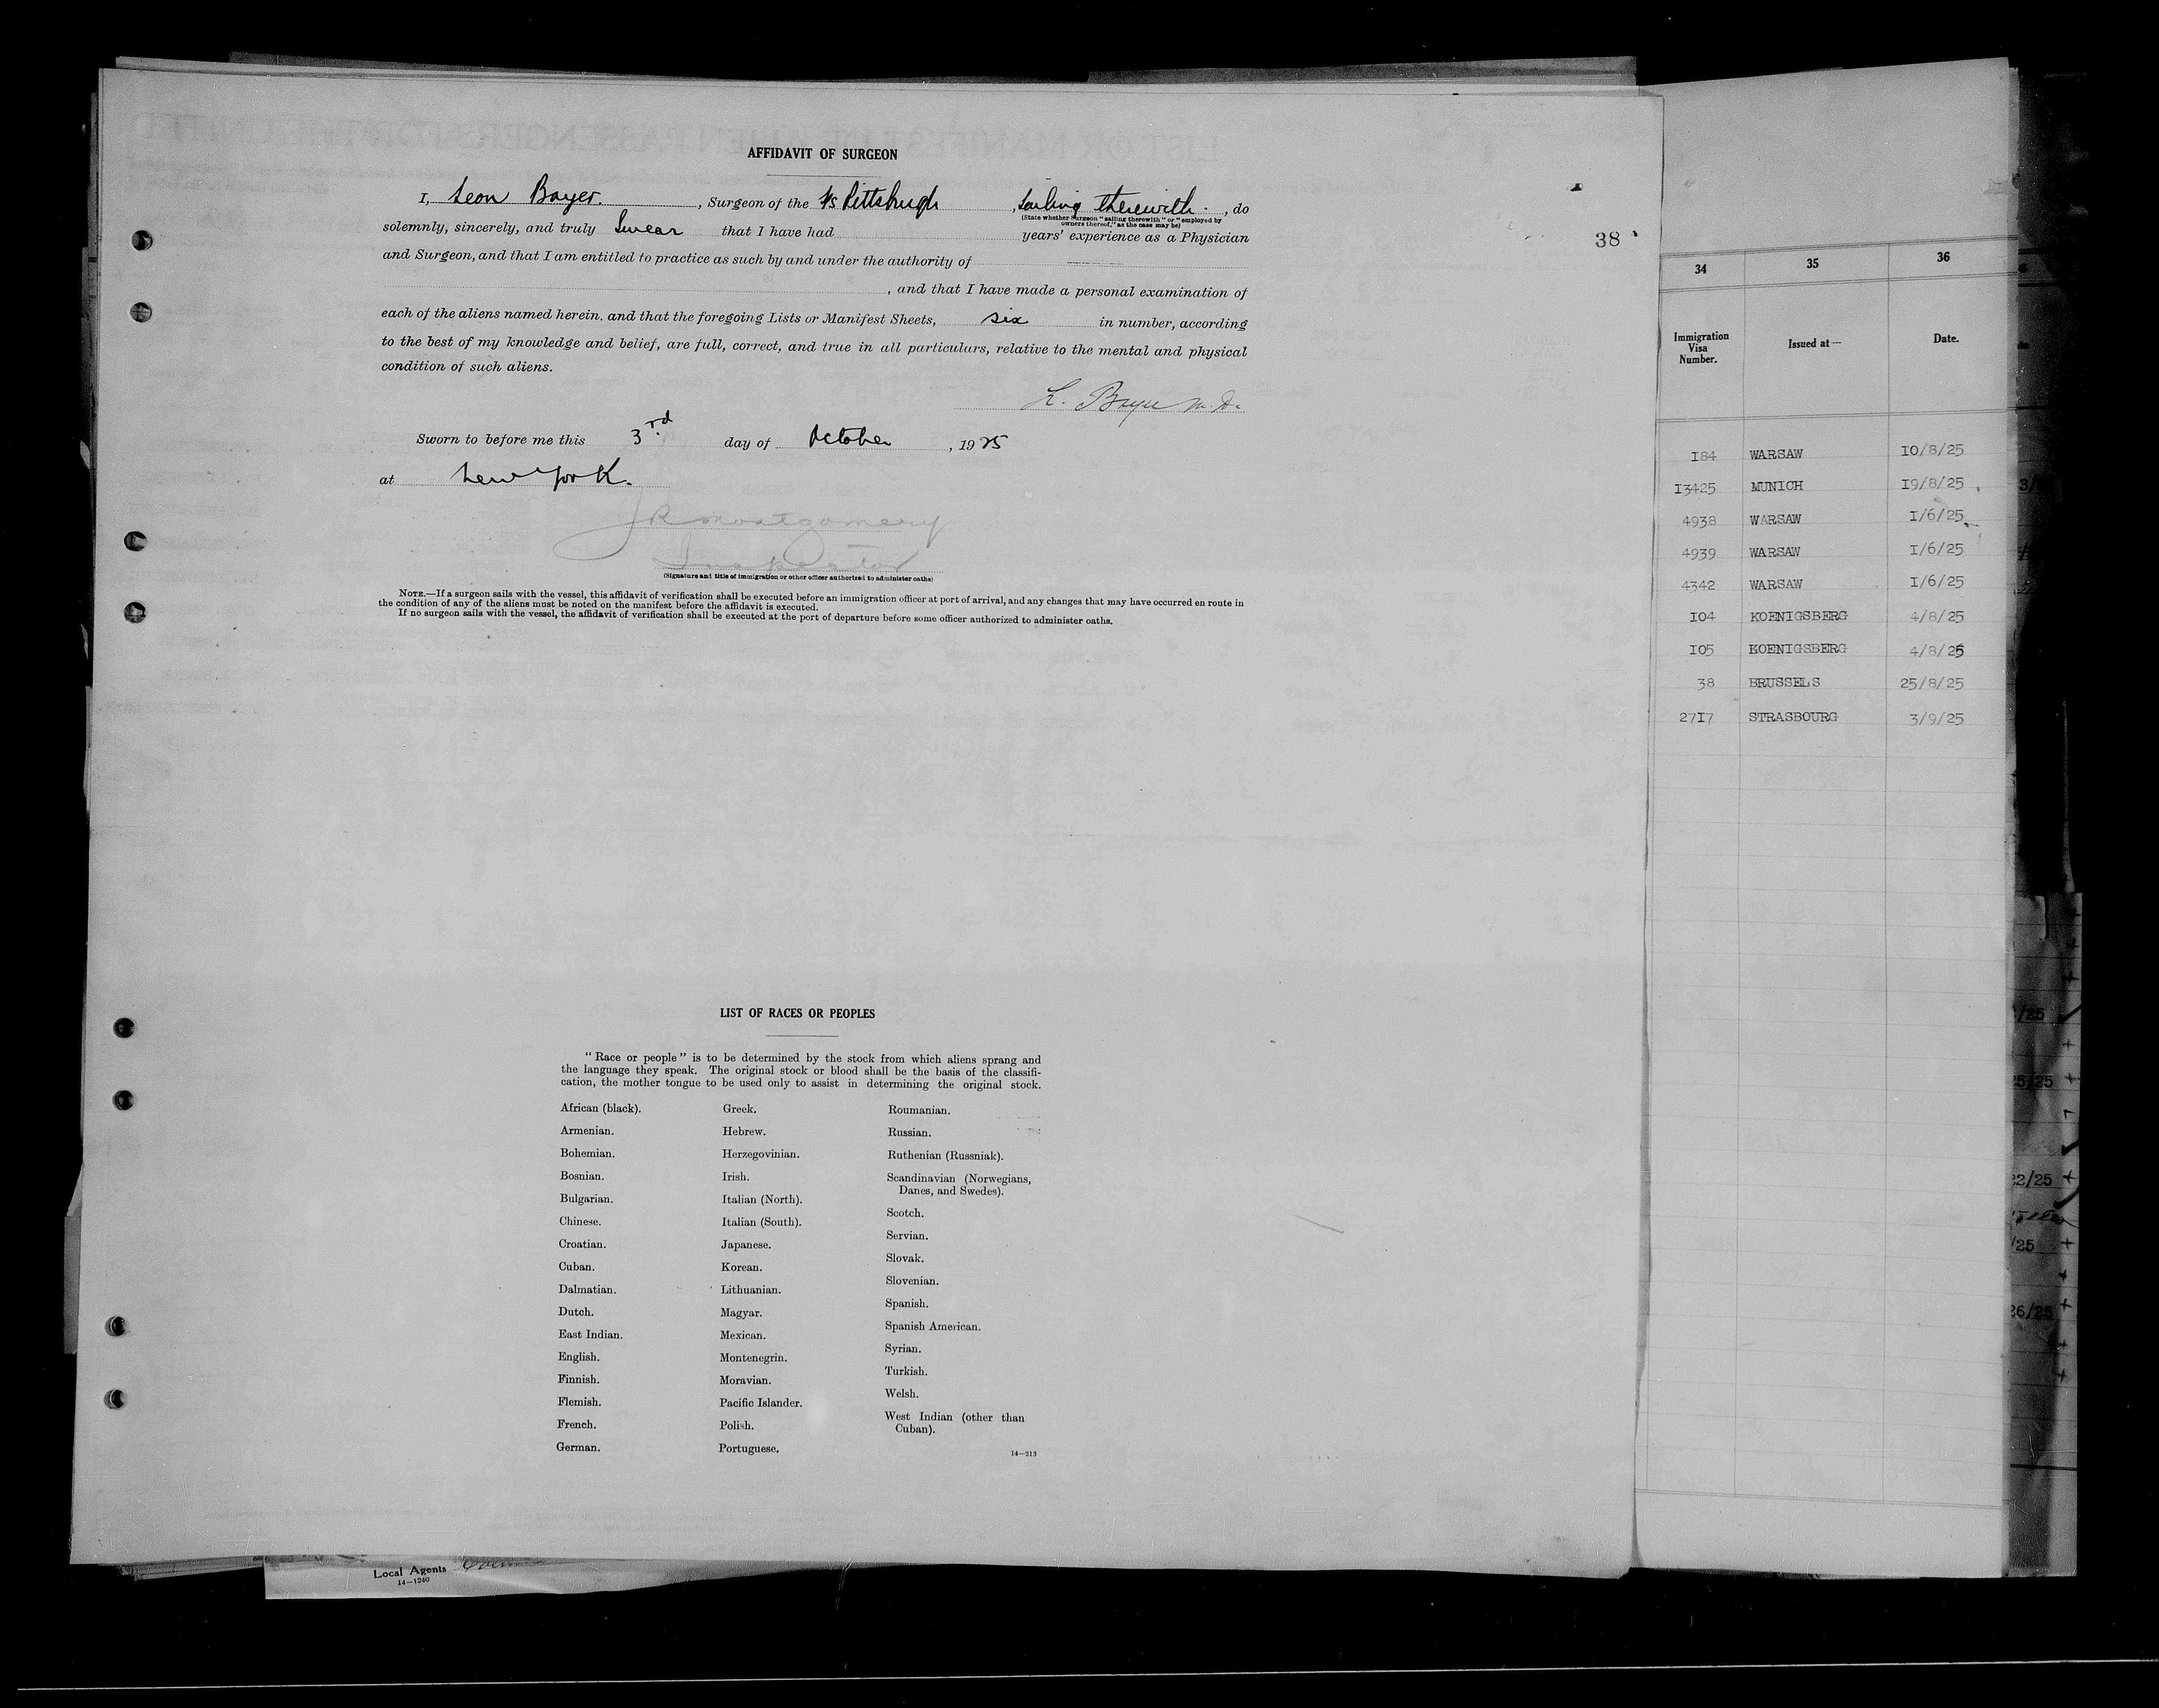 AFFIDAVIT OF SURGEON
I, Leon Bayer. , Surgeon of the s/s Pittsburgh , Sailing therewith. , do
(State whether Surgeon "sailing therewith" or "employed by
owners thereof," as the case may be)
solemnly, sincerely, and truly Swear that I have had years' experience as a Physician
and Surgeon, and that I am entitled to practice as such by and under the authority of
, and that I have made a personal examination of
each of the aliens named herein, and that the foregoing Lists or Manifest Sheets, six in number, according
to the best of my knowledge and belief, are full, correct, and true in all particulars, relative to the mental and physical
condition of such aliens.
L. Bayer M.D.
Sworn to before me this 3rd day of October , 1925
at New York.
JR Montgomery
Inspector
(Signature and title of immigration or other officer authorized to administer oaths)
NOTE.—If a surgeon sails with the vessel, this affidavit of verification shall be executed before an immigration officer at port of arrival, and any changes that may have occurred en route in
the condition of any of the aliens must be noted on the manifest before the affidavit is executed.
If no surgeon sails with the vessel, the affidavit of verification shall be executed at the port of departure before some officer authorized to administer oaths.
38
LIST OF RACES OR PEOPLES
"Race or people" is to be determined by the stock from which aliens sprang and
the language they speak. The original stock or blood shall be the basis of the classifi-
cation, the mother tongue to be used only to assist in determining the original stock.
African (black).
Armenian.
Bohemian.
Bosnian.
Bulgarian.
Chinese.
Croatian.
Cuban.
Dalmatian.
Dutch.
East Indian.
English.
Finnish.
Flemish.
French.
German.
Greek.
Hebrew.
Herzegovinian.
Irish.
Italian (North).
Italian (South).
Japanese.
Korean.
Lithuanian.
Magyar.
Mexican.
Montenegrin.
Moravian.
Pacific Islander.
Polish.
Portuguese.
Roumanian.
Russian.
Ruthenian (Russniak).
Scandinavian (Norwegians,
Danes, and Swedes).
Scotch.
Servian.
Slovak.
Slovenian.
Spanish.
Spanish American.
Syrian.
Turkish.
Welsh.
West Indian (other than
Cuban).
14—213
Local Agents
14—1240
34 35 36
Immigration Visa Number. Issued at— Date.
184 WARSAW 10/8/25
13425 MUNICH 19/8/25
4938 WARSAW 1/6/25
4939 WARSAW 1/6/25
4342 WARSAW 1/6/25
104 KOENIGSBERG 4/8/25
105 KOENIGSBERG 4/8/25
38 BRUSSELS 25/8/25
2717 STRASBOURG 3/9/25
/25
25/25
22/25
/25
26/25